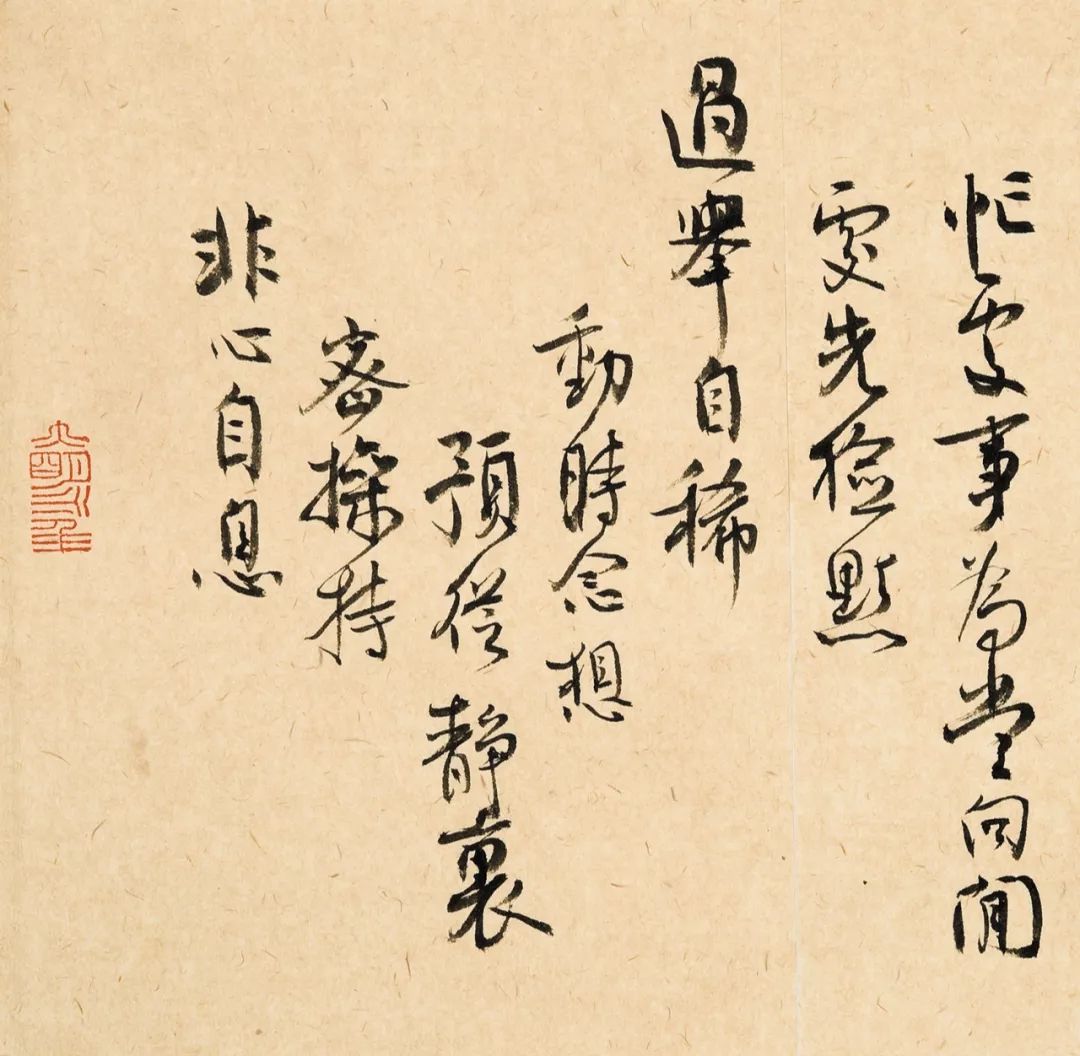 忙處事為常向閒
處先檢點
過舉自稀
動時念想
預從靜裏
密操持
非心自息